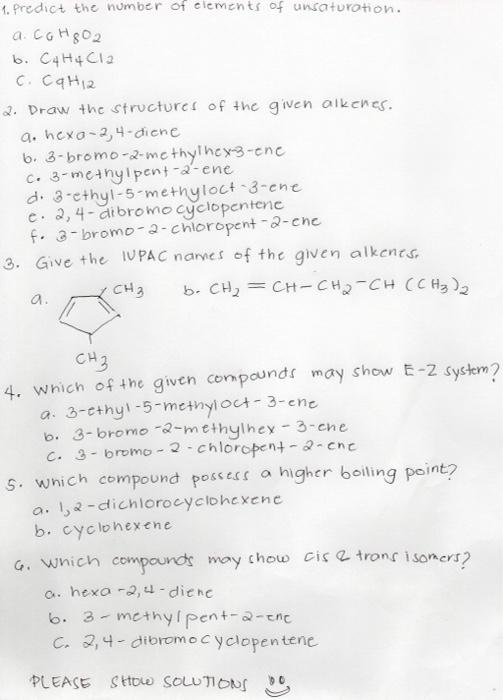 1. Predict the number of elements of unsaturation.
a. C6H8O2
b. C4H4Cl2
c. C9H12
2. Draw the structures of the given alkenes.
a. hexa-2,4-diene
b. 3-bromo-2-methylhex-3-ene
c. 3-methylpent-2-ene
d. 3-ethyl-5-methyloct-3-ene
e. 2,4-dibromocyclopentene
f. 3-bromo-2-chloropent-2-ene
3. Give the IUPAC names of the given alkenes.
a. CH3
CH3
b. CH2=CH-CH2-CH(CH3)2
4. Which of the given compounds may show E-Z system?
a. 3-ethyl-5-methyloct-3-ene
b. 3-bromo-2-methylhex-3-ene
c. 3-bromo-2-chloropent-2-ene
5. Which compound possess a higher boiling point?
a. 1,2-dichlorocyclohexene
b. cyclohexene
6. Which compounds may show cis & trans isomers?
a. hexa-2,4-diene
b. 3-methylpent-2-ene
c. 2,4-dibromocyclopentene
PLEASE SHOW SOLUTIONS